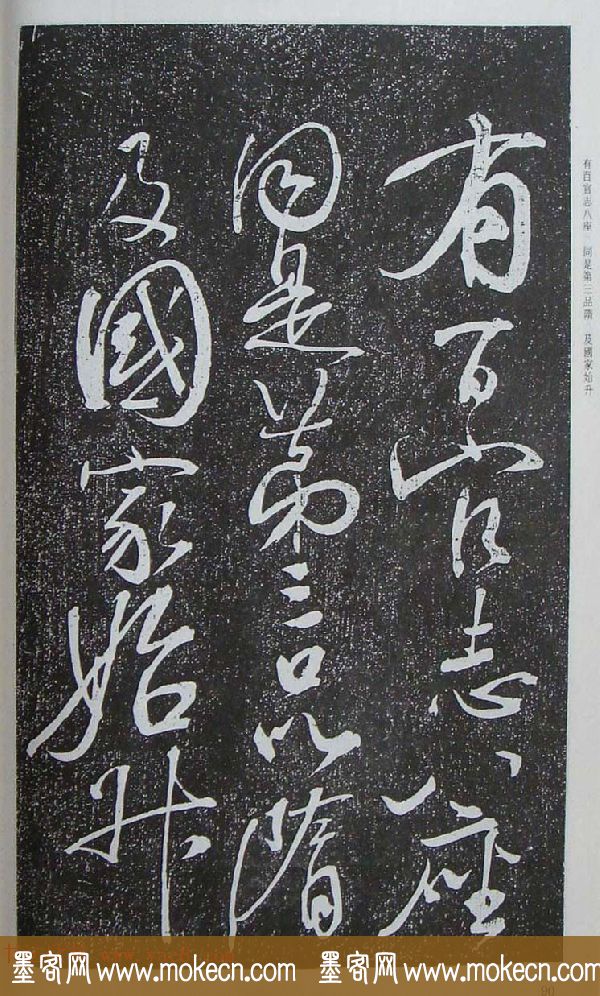 有百官志八座
同是第三品隋
及國家始升
有百官志八座 同是第三品隋 及國家始升
墨客网 www.mokecn.com 墨客网 www.mokecn.com
90